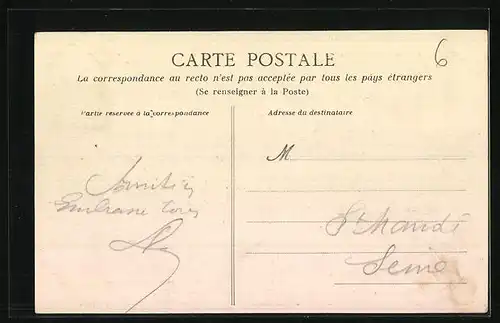 CARTE POSTALE
6
La correspondance au recto n'est pas acceptée par tous les pays étrangers
(Se renseigner à la Poste)
Partie réservée à la correspondance
Adresse du destinataire
M
St Mandé
Seine